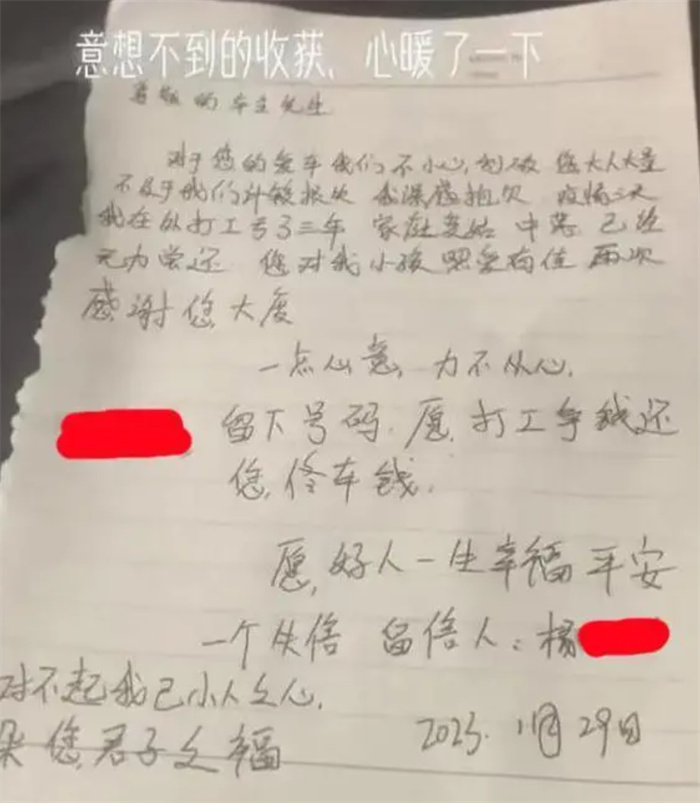 意想不到的收获,心暖了一下
尊敬的车主先生
对于您的爱车我们不小心,划破 您大人大量
不及于我们计较损失 我深感抱欠 疫情三天
我在外打工亏了三年 家庭变故 中落 已经
无力尝还 您对我小孩 照爱有佳 再次
感谢您大度
一点心意,力不从心.
留下号码.愿,打工争钱还
您,佟车钱.
愿,好人一生幸福平安
一个失信 留信人:杨
对不起我已小人之心,
您,君子之福
2023.11月29日